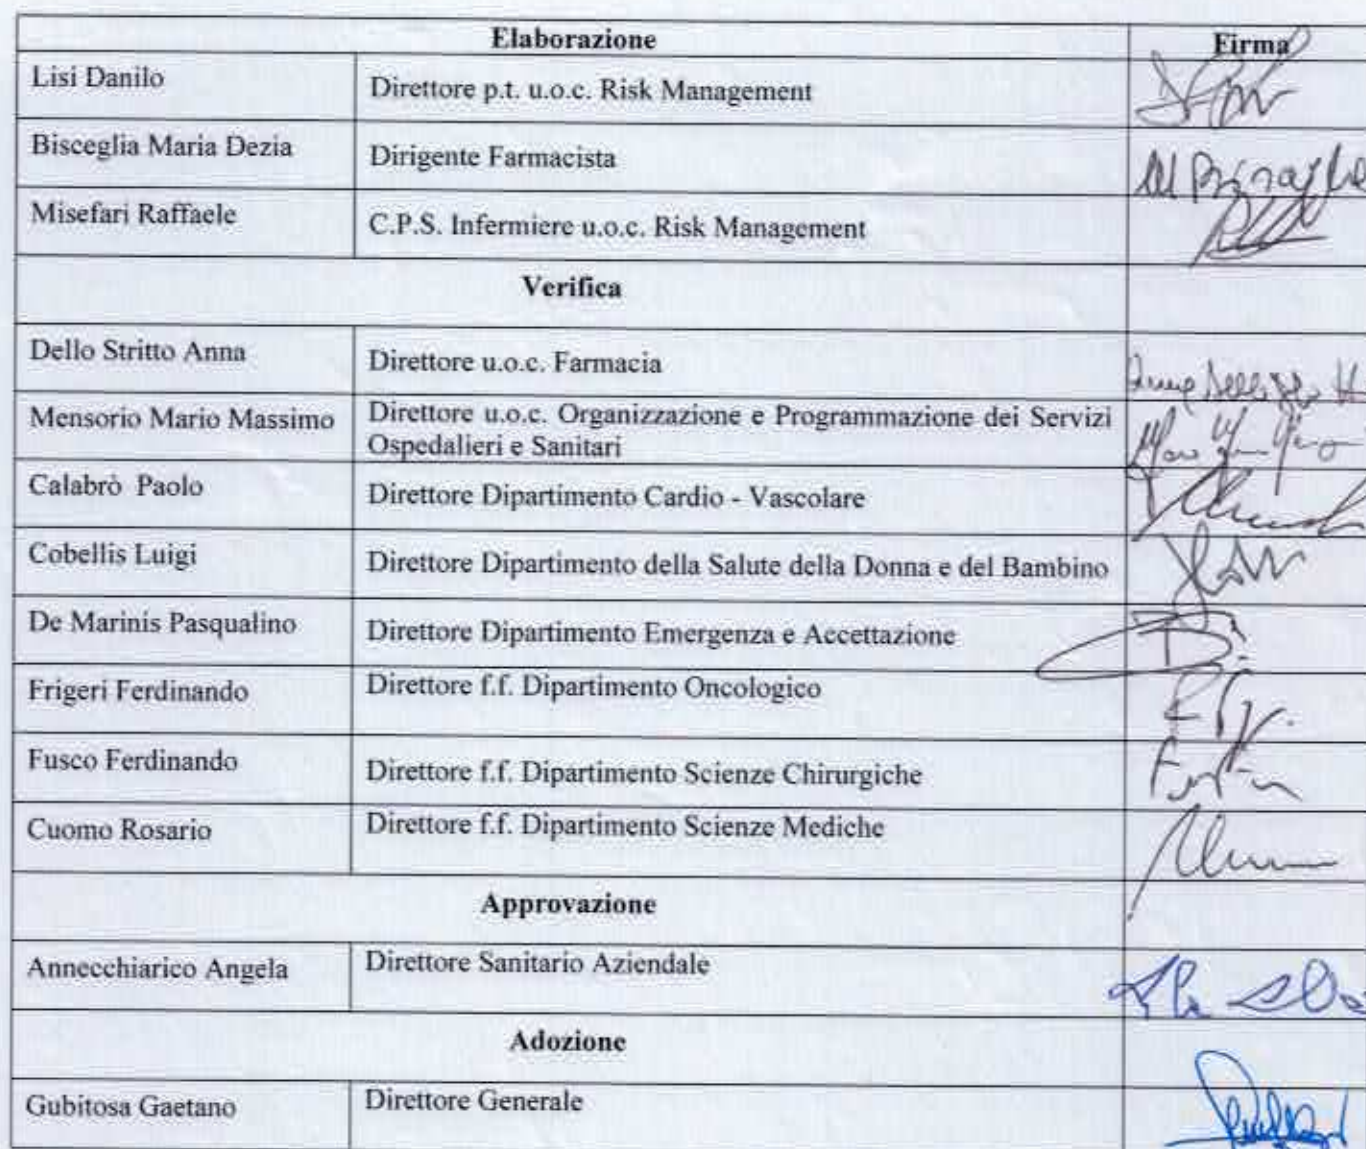 Elaborazione Firma
Lisi Danilo Direttore p.t. u.o.c. Risk Management
Bisceglia Maria Dezia Dirigente Farmacista
Misefari Raffaele C.P.S. Infermiere u.o.c. Risk Management
Verifica
Dello Stritto Anna Direttore u.o.c. Farmacia
Mensorio Mario Massimo Direttore u.o.c. Organizzazione e Programmazione dei Servizi
Ospedalieri e Sanitari
Calabrò Paolo Direttore Dipartimento Cardio - Vascolare
Cobellis Luigi Direttore Dipartimento della Salute della Donna e del Bambino
De Marinis Pasqualino Direttore Dipartimento Emergenza e Accettazione
Frigeri Ferdinando Direttore f.f. Dipartimento Oncologico
Fusco Ferdinando Direttore f.f. Dipartimento Scienze Chirurgiche
Cuomo Rosario Direttore f.f. Dipartimento Scienze Mediche
Approvazione
Annecchiarico Angela Direttore Sanitario Aziendale
Adozione
Gubitosa Gaetano Direttore Generale